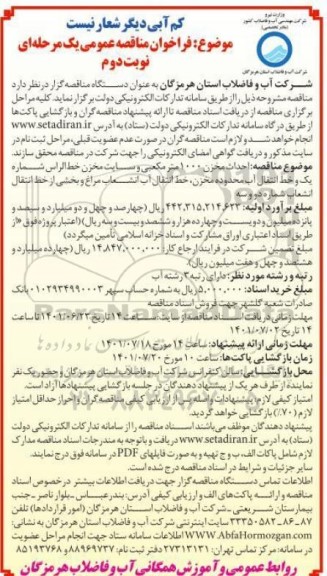 وزارت نیرو
شرکت مهندسی آب و فاضلاب کشور
شرکت آب و فاضلاب استان هرمزگان
کم آبی دیگر شعار نیست
موضوع: فراخوان مناقصه عمومی یک مرحله‌ای
نوبت دوم
شرکت آب و فاضلاب استان هرمزگان به عنوان دستگاه مناقصه گزار در نظر دارد
مناقصه مشروحه ذیل را از طریق سامانه تدارکات الکترونیکی دولت برگزار نماید. کلیه مراحل
برگزاری مناقصه از دریافت اسناد مناقصه تا ارائه پیشنهاد مناقصه گران و بازگشایی پاکت‌ها
از طریق درگاه سامانه تدارکات الکترونیکی دولت (ستاد) به آدرس www.setadiran.ir
انجام خواهد شد و لازم است در صورت عدم عضویت قبلی، مراحل ثبت نام در
سایت مذکور و دریافت گواهی امضای الکترونیکی را جهت شرکت در مناقصه محقق سازند.
موضوع مناقصه: احداث مخزن ۱۰۰۰ متر مکعبی وسایت مخزن خط الراس شماره
یک و خط انتقال آب محدوده مخزن، خط انتقال آب انشعاب مراغ و بخشی از خط انتقال
انشعاب شماره دو رسه
مبلغ برآورد اولیه: ۴۴۲,۳۱۵,۲۱۴,۶۲۳ ریال (چهارصد و چهل و دو میلیارد و سیصد و
پانزده میلیون و دویست و چهارده هزار و ششصد و بیست و سه ریال) (اعتبار پروژه فوق «از
طریق اسناد اعتباری اوراق مشارکت و اسناد خزانه اسلامی تأمین میگردد)
مبلغ تضمین شرکت در فرایند ارجاع کار: ۱۴,۸۴۷,۰۰۰,۰۰۰ ریال (چهارده میلیارد و
هشتصد و چهل و هفت میلیون ریال).
رتبه و رشته مورد نظر: دارای رتبه ۳ رشته آب
مبلغ خرید اسناد: ۵,۰۰۰,۰۰۰ ریال به شماره حساب سپهر ۰۱۰۲۹۳۴۹۹۰۰۰۳ بانک
صادرات شعبه گلشهر جهت فروش اسناد مناقصه
مهلت زمانی دریافت اسناد مناقصه از سایت: از ساعت ۱۴ تاریخ ۱۴۰۱/۰۶/۲۳ تا ساعت
۱۴ تاریخ ۱۴۰۱/۰۷/۰۲
مهلت زمانی ارائه پیشنهاد: ساعت ۱۴ مورخ ۱۴۰۱/۰۷/۱۸
زمان بازگشایی پاکت‌ها: ساعت ۱۰ مورخ ۱۴۰۱/۰۷/۲۰
محل بازگشایی: سالن کنفرانس شرکت آب و فاضلاب استان هرمزگان و حضور یک نفر
نماینده از طرف هر یک از پیشنهاد دهندگان در جلسه بازگشایی پیشنهادها آزاد است.
لازم (۷۰٪) بازگشایی خواهد گردید.
پیشنهاد دهندگان موظف می‌باشند اسناد مناقصه را از سامانه تدارکات الکترونیکی دولت
(ستاد) به آدرس www.setadiran.ir دریافت و با توجه به مندرجات اسناد مناقصه مدارک
لازم شامل پاکات الف، ب و ج تهیه و به صورت فایلهای PDF در سامانه فوق درج نمایند.
سایر جزئیات و شرایط در اسناد مناقصه درج شده است.
اطلاعات تماس دستگاه مناقصه گزار جهت دریافت اطلاعات بیشتر در خصوص اسناد
مناقصه و ارائه پاکت‌های الف و ارزیابی کیفی آدرس: بندرعباس ـ بلوار ناصر ـ جنب
بیمارستان شریعتی ـ شرکت آب و فاضلاب استان هرمزگان (امور قراردادها) تلفن
۸۷-۸۶-۳۳۳۵۰۵۸۲ سایت اینترنتی شرکت آب و فاضلاب استان هرمزگان به نشانی:
WWW.AbfaHormozgan.com اطلاعات سامانه ستاد جهت انجام مراحل عضویت
در سامانه: مرکز تماس تهران: ۲۷۳۱۳۱۳۱ دفتر ثبت نام: ۸۸۹۶۹۷۳۷ و ۸۵۱۹۳۷۶۸
روابط عمومی و آموزش همگانی آب و فاضلاب هرمزگان